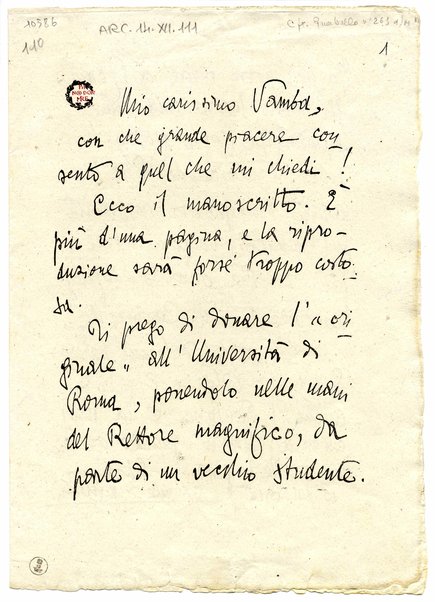 10586
110
ARC. 14. XII. 111
1
Mio carissimo Vamba,
con che grande piacere con
sento a quel che mi chiedi!
Ecco il manoscritto. È
più d'una pagina, e la ripro-
duzione sarà forse troppo costo
sa.
Ti prego di donare l'"ori
ginale" all'Università di
Roma, ponendolo nelle mani
del Rettore magnifico, da
parte di un vecchio studente.